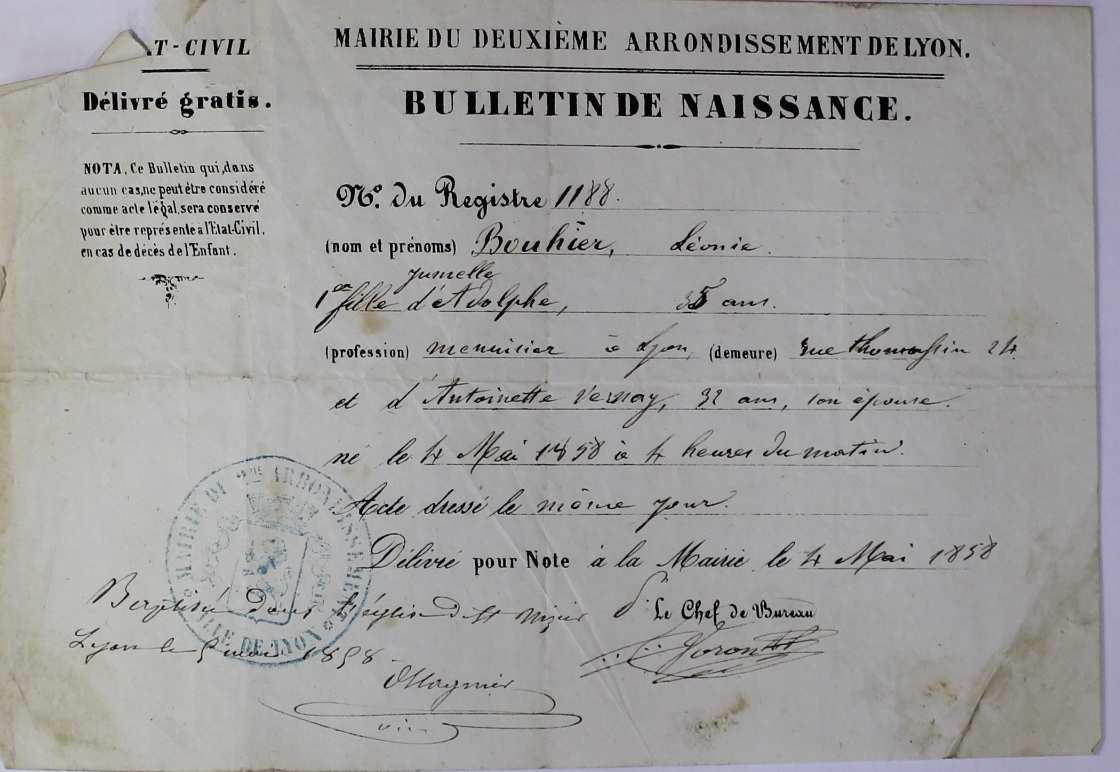 T-CIVIL
Délivré gratis.
NOTA. Ce Bulletin qui, dans
aucun cas, ne peut être considéré
comme acte légal, sera conservé
pour être représenté a l'Etat-Civil.
en cas de décès de l'Enfant.
MAIRIE DU DEUXIÈME ARRONDISSEMENT DE LYON.
BULLETIN DE NAISSANCE.
No. du Registre 1188.
(nom et prénoms) Bouhier, Léonie.
jumelle
1ere fille d'Adolphe, 35 ans.
(profession) menuisier à Lyon, (demeure) rue thomassin 24
et d'Antoinette Vernay, 32 ans, son épouse.
né le 4 Mai 1858 à 4 heures du matin.
Acte dressé le même jour.
Délivré pour Note à la Mairie le 4 Mai 1858
Baptisée dans l'église d St Nizier
Lyon le 5 mai 1858
Le Chef de Bureau
MAIRIE DU 2me ARRONDISSEMENT
VILLE DE LYON